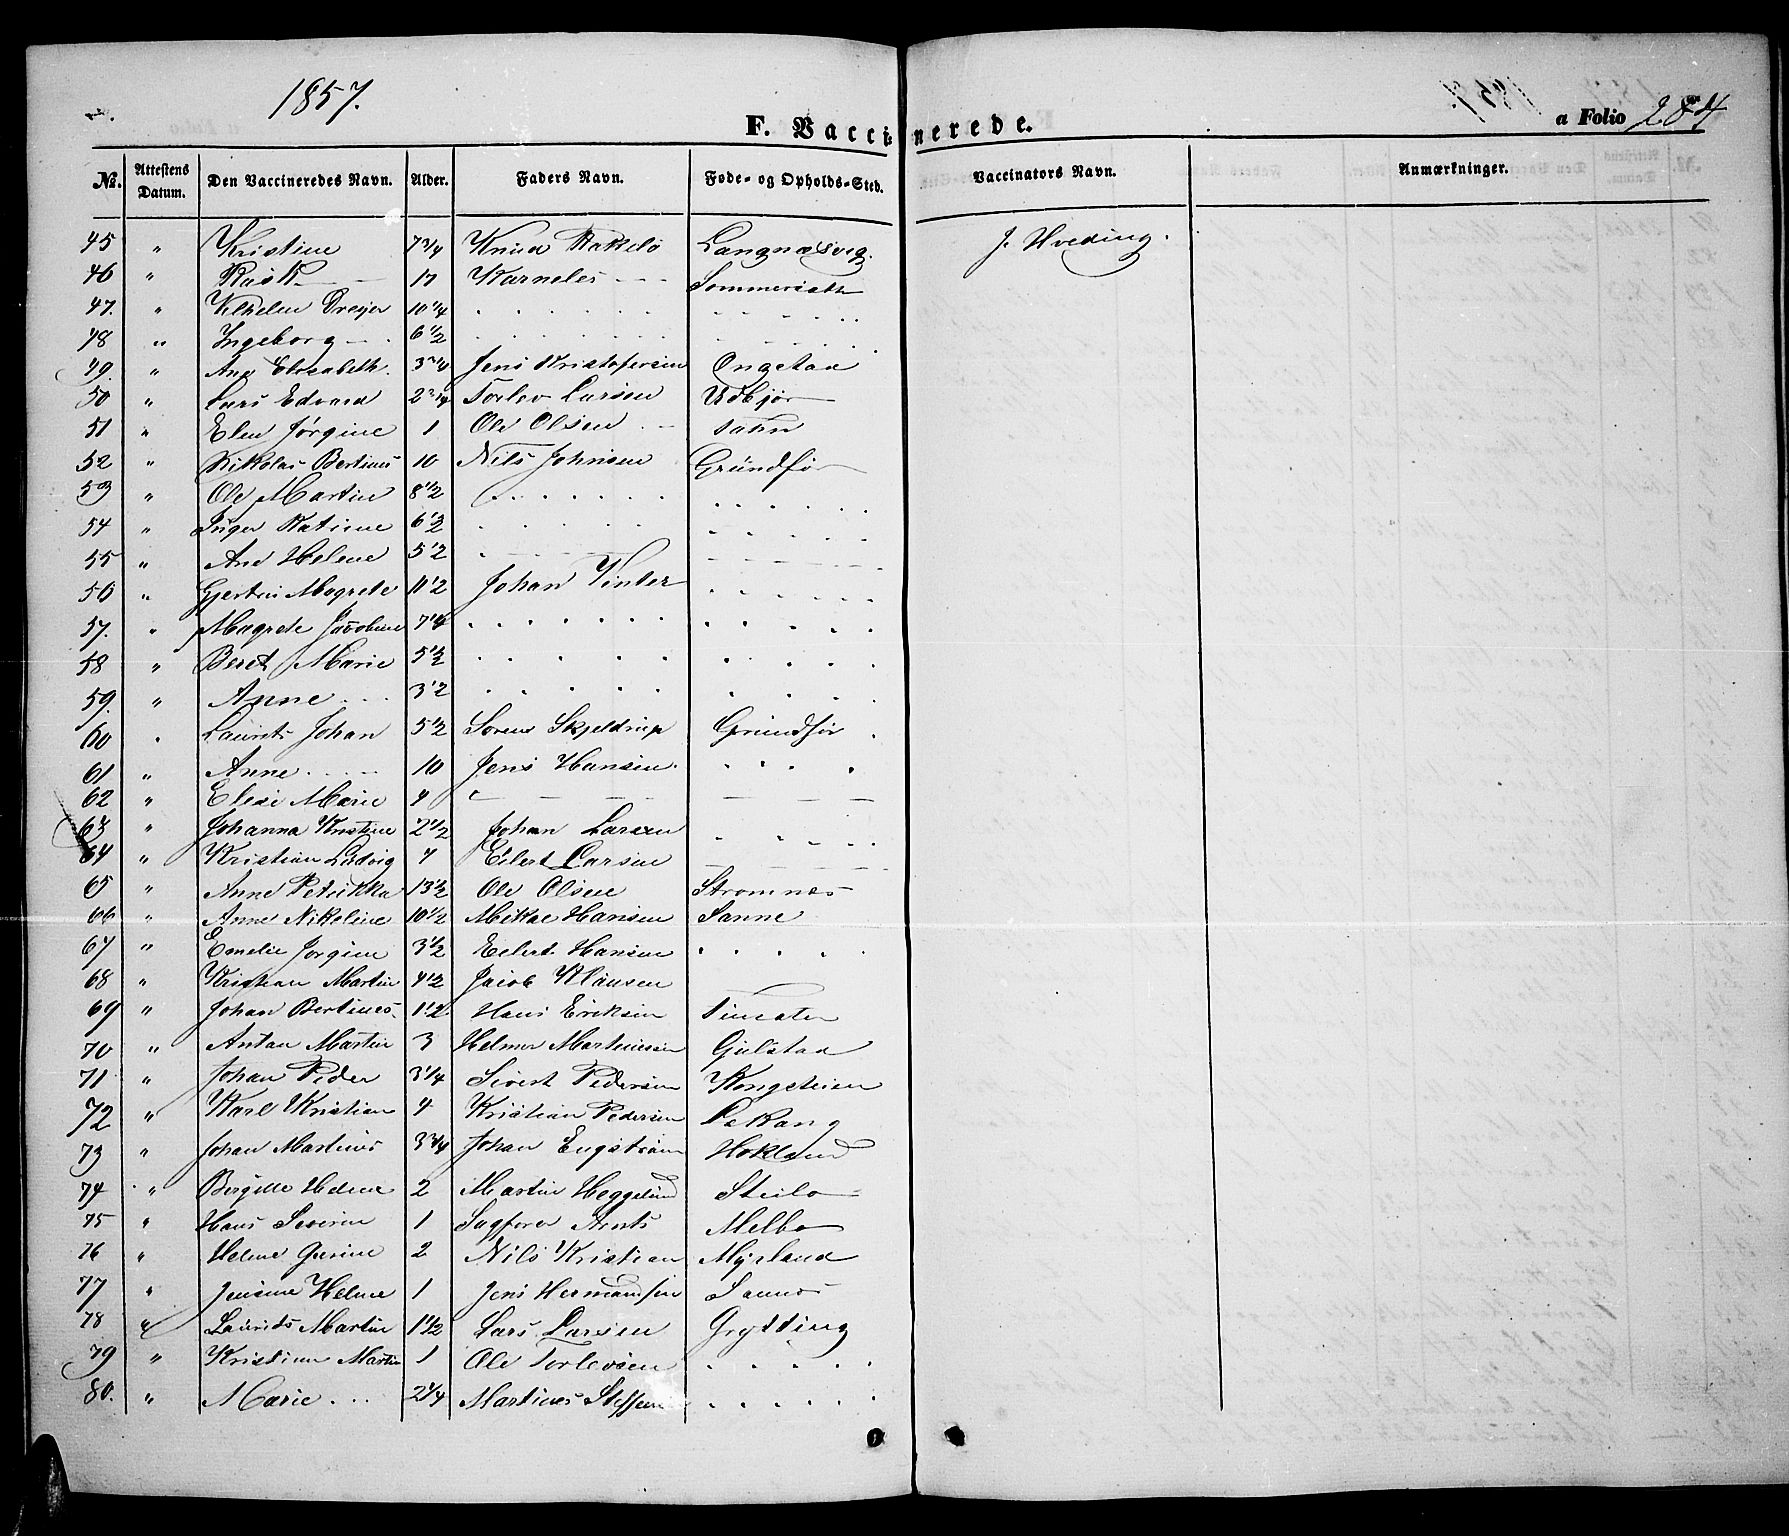 1857.
F. Vaccinerede.
a Folio 284
No. Attestens Datum. Den Vaccineredes Navn. Alder. Faders Navn. Føde- og Opholds-Sted. Vaccinators Navn. Anmærkninger.
45 " Kristine 7 3/4 Knud Langnæsvig. J. Hveding.
46 " Rask 17 Karneles Sommersæth
47. " Vilhelm Dreyer 10 1/4
48 " Ingeborg 6 1/2
49. " Ane Elisabeth. 3 3/4 Jens Kristofersen Ongstad
50 " Lars Edvard 2 3/4 Torlev Larsen Udbjør
51 " Elen Jørgine 1 Ole Olsen
52 " Nikolai Bertinus 10 Nils Johnsen Grundfør
53 " Ole Martin 8 1/2
54 " Inger Katrine 6 1/2
55 " Ane Helene 5 1/2
56 " Gjertru Magrete 11 1/2 Johan Vinter
57. " Magrete Jacobine 7 1/4
58 " Beret Marie 5 1/2
59. " Anne 3 1/2
60 " Laurits Johan 5 1/2 Sorens Skjeldrup Grundfør
61 " Anne 10 Jens Hansen
62 " Elese Marie 4 "
63 " Johanna Kristine 2 1/2 Johan Larsen
64 " Kristian Ludvig 4 Eilert Larsen
65 " Anne Petrikka 13 1/2 Ole Olsen Stromnes
66 " Anne Nikoline 10 1/2 Mikal Hansen Sanne
67 " Emelie Jørgine 3 1/2 Eilert Hansen
68 " Kristian Martin 4 1/2 Jacob Klausen
69 " Johan Bertines 1 1/2 Hans Eriksen
70 " Antan Martin 3 Helmer Martinessen Gulstad
71 " Johan Peder 3 1/4 Sivert Pedersen Kongsteien
72 " Karl Kristian 4 Kristian Pedersen
73 " Johan Martinus 3 3/4 Johan Engstrøm Hokland
74 " Bergitte Helene 2 Martin Heggelund Steilo
75 " Hans Severin 1 Sagforer Arnts Melbo
76 " Helene Gurine 2 Nils Kristian Myrland
77 " Jensine Helene 1 Jens Hermandsen Sannes
78 " Laurids Martin 1 1/2 Lars Larsen Grytting
79 " Kristian Martin 1 Ole Torlevsen
80. " Marie 2 1/4 Martines Steffen